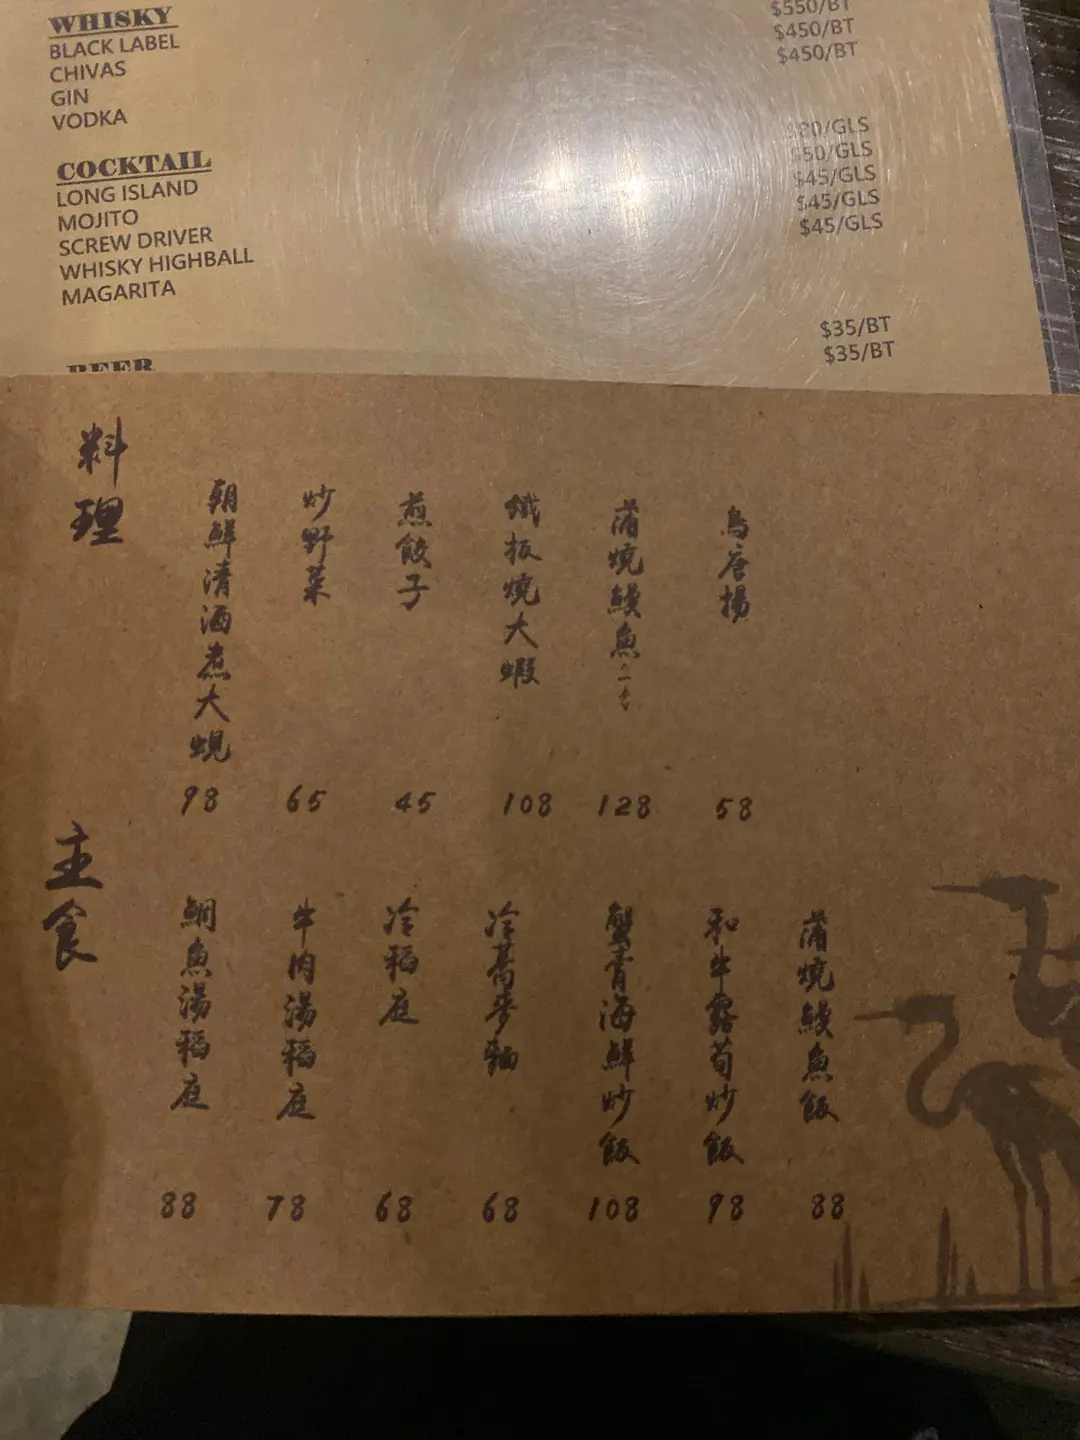 WHISKY
BLACK LABEL
CHIVAS
GIN
VODKA
$550/BT
$450/BT
$450/BT
COCKTAIL
LONG ISLAND
MOJITO
SCREW DRIVER
WHISKY HIGHBALL
MAGARITA
$80/GLS
$50/GLS
$45/GLS
$45/GLS
$45/GLS
BEER
$35/BT
$35/BT
料理
朝鮮清酒煮大蜆
98
炒野菜
65
煎餃子
45
鐵板燒大蝦
108
蒲燒鰻魚
128
鳥唐揚
58
主食
鯛魚湯稻庭
88
牛肉湯稻庭
78
冷稻庭
68
冷蕎麥麵
68
蟹膏海鮮炒飯
108
和牛露荀炒飯
98
蒲燒鰻魚飯
88